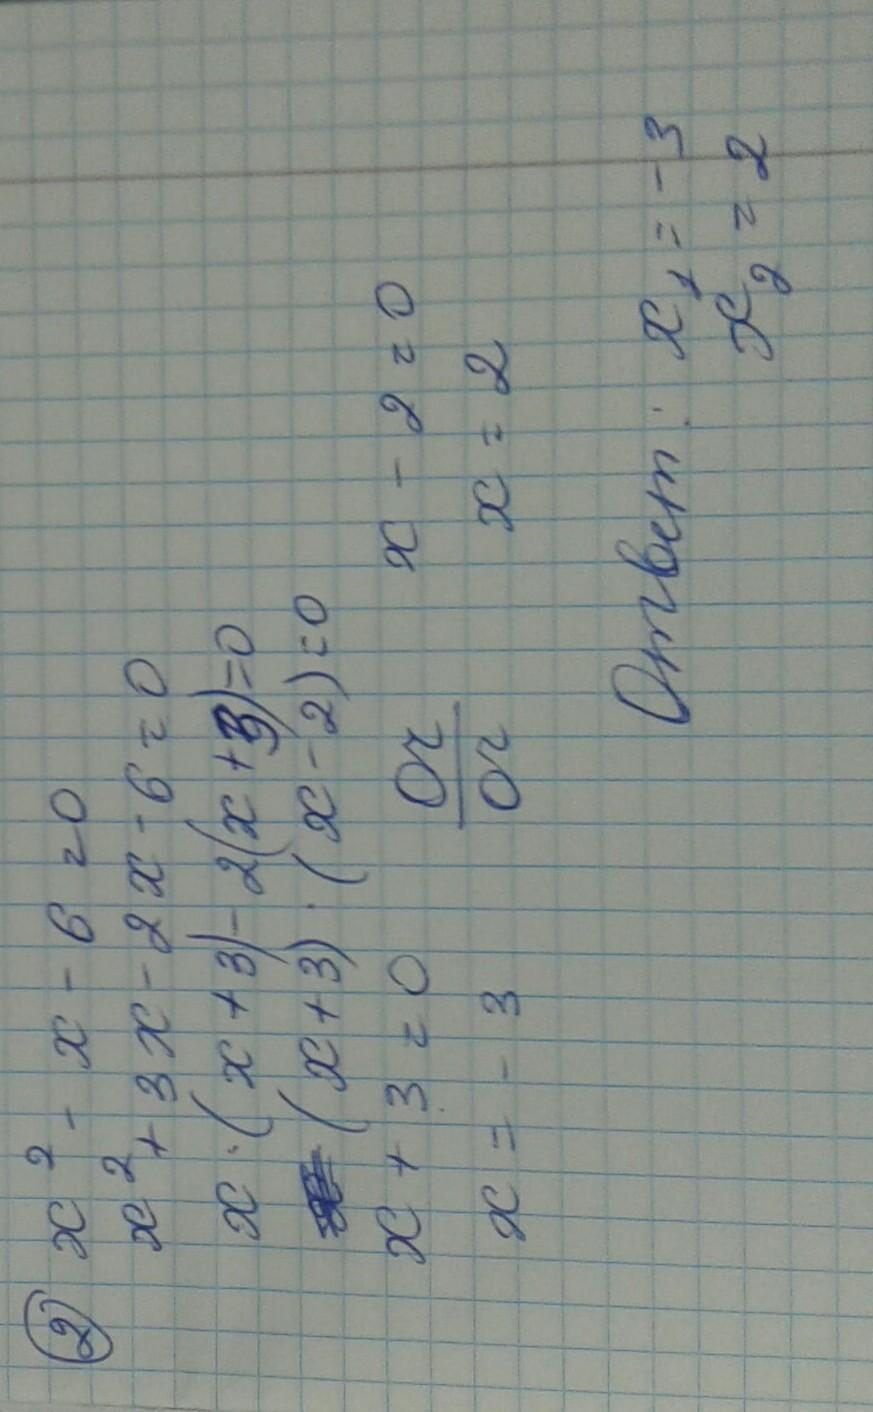 ② x² - x - 6 = 0
x² + 3x - 2x - 6 = 0
x · (x + 3) - 2(x + 3) = 0
(x + 3) · (x - 2) = 0
x + 3 = 0 Or x - 2 = 0
x = - 3 Or x = 2
Ответ: x₁ = - 3
x₂ = 2